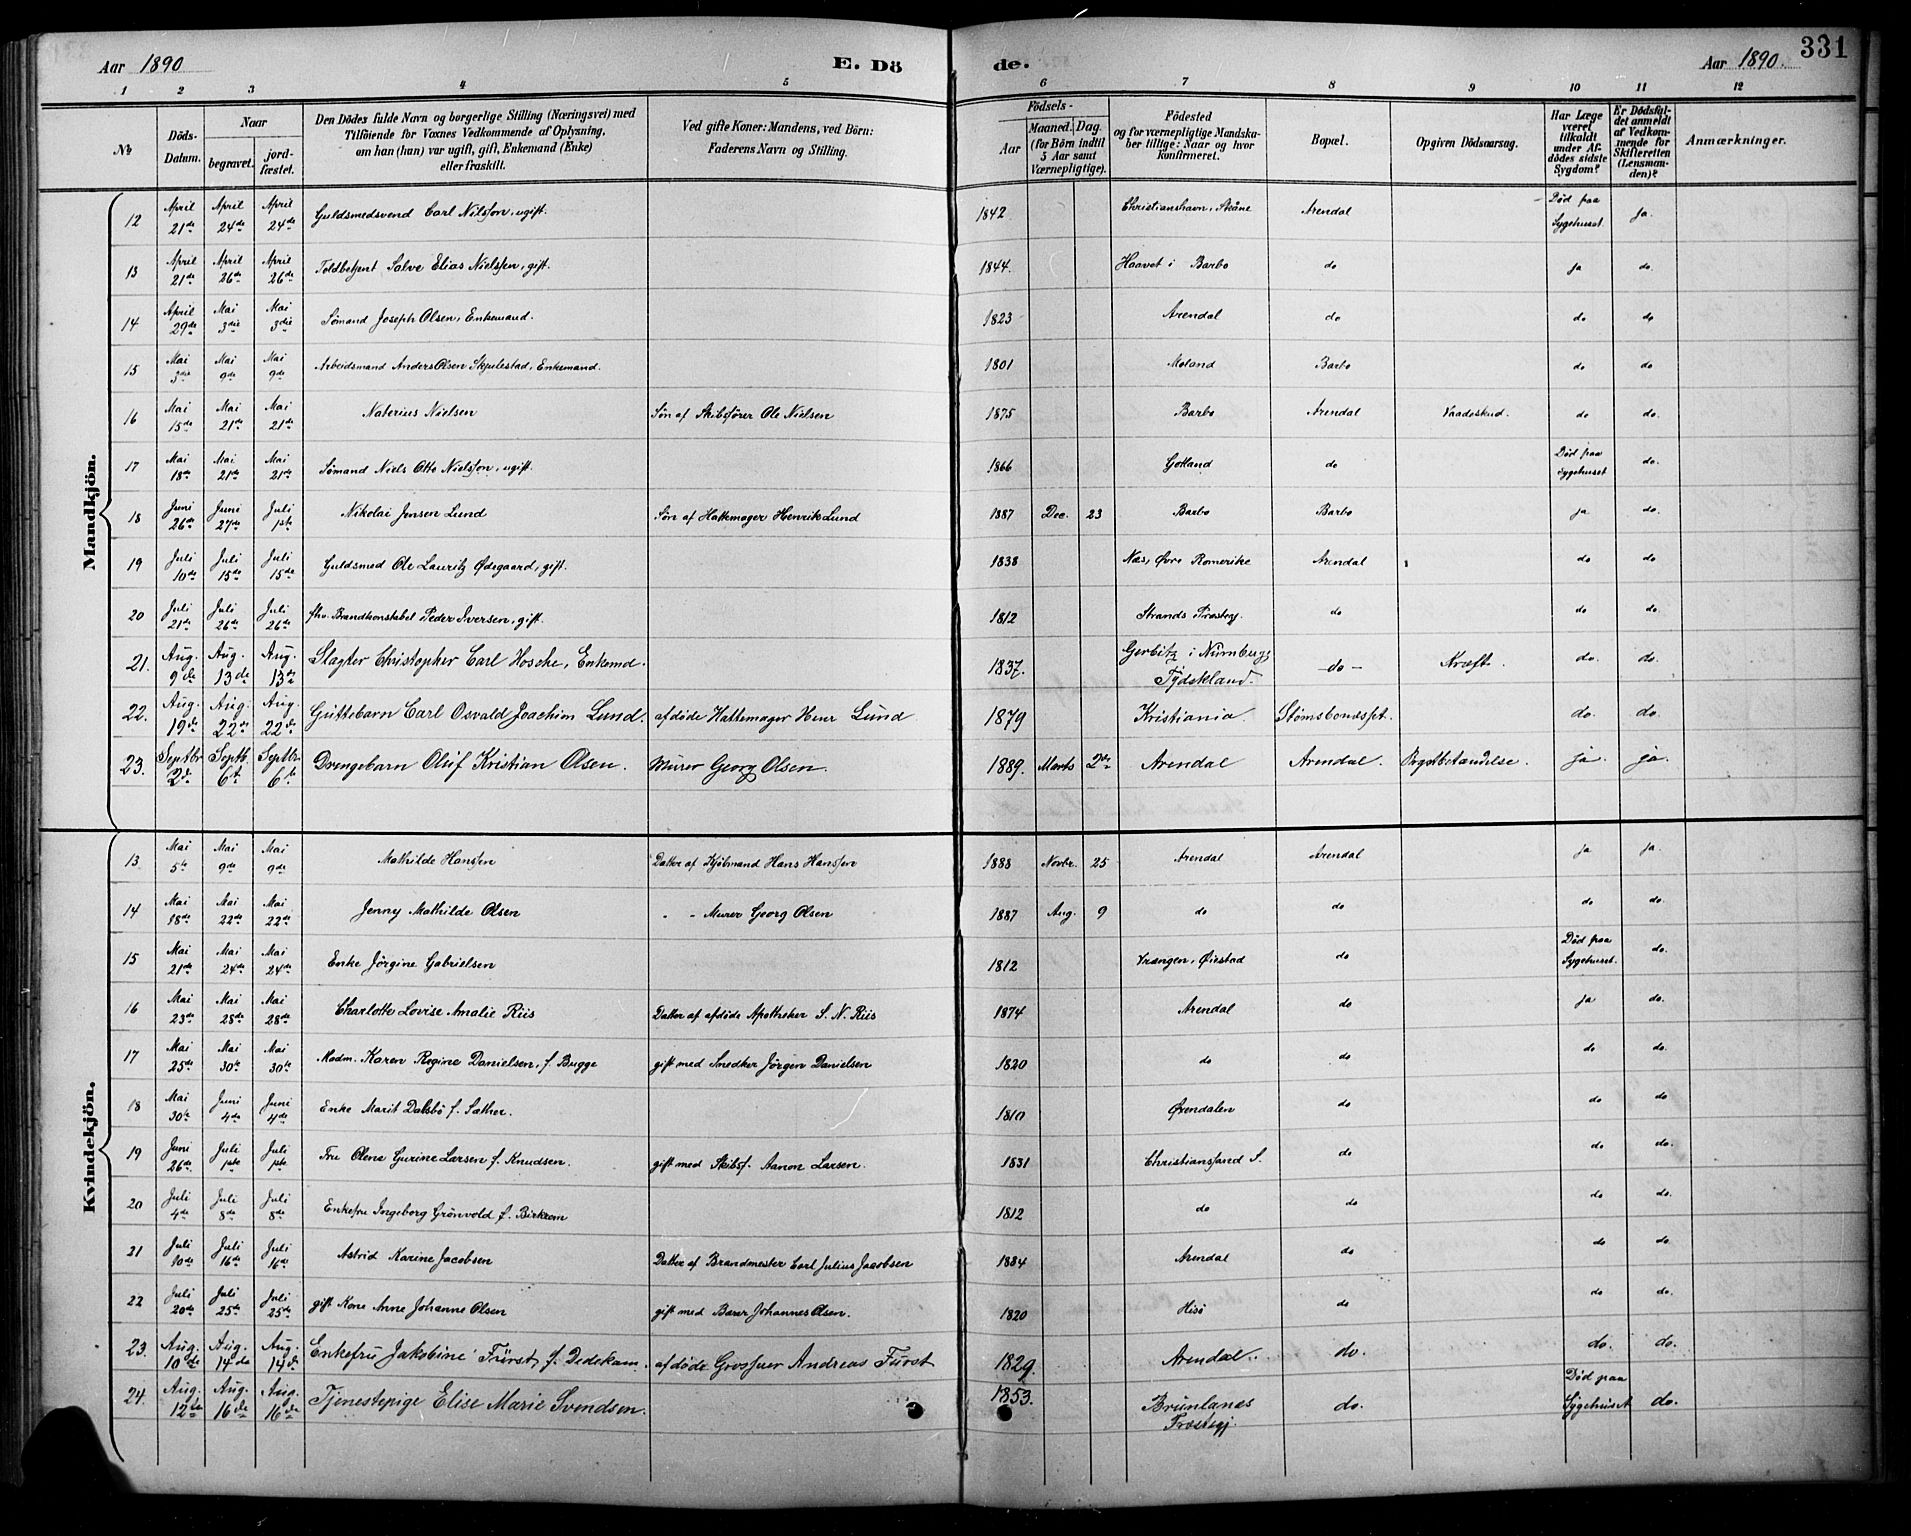 Aar 1890
E. Dö
de.
Aar 1890.
331
1 2 3 4 5 6 7 8 9 10 11 12
№
Döds-Datum.
Naar
begravet.
jord-fæstet.
Den Dödes fulde Navn og borgerlige Stilling (Næringsvei) med
Tilföiende for Voxnes Vedkommende af Oplysning,
om han (hun) var ugift, gift, Enkemand (Enke)
eller fraskilt.
Ved gifte Koner: Mandens, ved Börn:
Faderens Navn og Stilling.
Födsels-
Aar
Maaned. Dag.
(for Börn indtil
5 Aar samt
Værnepligtige).
Födested
og for værnepligtige Mandska-
ber tillige: Naar og hvor
konfirmeret.
Bopæl.
Opgiven Dödsaarsag.
Har Læge
været
tilkaldt
under Af-
dödes sidste
Sygdom?
Er Dödsfal-
det anmeldt
af Vedkom-
mende for
Skifteretten
(Lensman-
den)?
Anmærkninger.
Mandkjön.
12 April 21de April 24de April 24de Guldsmedsvend Carl Nilsson, ugift. 1842 Christianshavn, Skåne Arendal Død paa Sygehuset. ja.
13 April 21de April 26de April 26de Toldbetjent Salve Elias Nielsen, gift. 1844. Haavet i Barbo do ja do.
14 April 29de Mai 3die Mai 3die Sømand Joseph Olsen, Enkemand. 1823 Arendal do do do
15 Mai 3die Mai 9de Mai 9de Arbeidsmand Anders Olsen Skjulestad, Enkemand. 1801 Moland Barbo do do
16 Mai 15de Mai 21de Mai 21de Naterius Nielsen Søn af Skibsfører Ole Nielsen 1875 Barbo Arendal Vaadeskud. do do.
17 Mai 18de Mai 21de Mai 21de Sømand Niels Otto Nielsson, ugift. 1866 Gotland do Død paa Sygehuset do.
18 Juni 26de Juni 27de Juli 1ste Nikolai Jensen Lund Søn af Hattemager Henrik Lund 1887 Dec. 23 Barbo Barbo ja do.
19 Juli 10de Juli 15de Juli 15de Guldsmed Ole Lauritz Ødegaard, gift. 1838 Næs, Øvre Romerike Arendal do do.
20 Juli 21de Juli 26de Juli 26de fhv. Brandkonstabel Peder Iversen, gift. 1812 Strands Præstegj. do do do.
21. Aug. 9de Aug. 13de Aug. 13de Slagter Christopher Carl Hosche, Enkemd. 1837. Gerbitz i Nürnberg, Tydskland. -do- Kræft. do. do.
22. Aug. 19de Aug. 22de Aug. 22de Guttebarn Carl Osvald Joachim Lund. afdøde Hattemager Henr Lund 1879 Kristiania. Stømsbonæsset. do. do.
23. Septbr 2d. Septb. 6t. Septbr. 6te Drengebarn Oluf Kristian Olsen. Murer Georg Olsen. 1889. Marts 2den Arendal Arendal. Brystbetændelse. ja. ja.
Kvindekjön.
13 Mai 5te Mai 9de Mai 9de Mathilde Hanssen Datter af Kjøbmand Hans Hanssen 1888 Novbr. 25 Arendal Arendal ja ja.
14 Mai 18de Mai 22de Mai 22de Jenny Mathilde Olsen " - Murer Georg Olsen 1887 Aug. 9 do do do do.
15 Mai 21de Mai 24de Mai 24de Enke Jörgine Gabrielsen 1812 Vrangen, Øiestad do Død paa Sygehuset. do.
16 Mai 23de Mai 28de Mai 28de Charlotte Lovise Amalie Riis Datter af afdøde Apotheker S. N. Riis 1874 Arendal do ja do.
17 Mai 25de Mai 30te Mai 30te Madm. Karen Regine Danielsen, f. Bugge gift med Snedker Jørgen Danielsen 1820 do do do do.
18 Mai 30te Juni 4de Juni 4de Enke Marit Dalsbö f. Sæther. 1810 Ørendalen do do do
19 Juni 26de Juli 1ste Juli 1ste Fru Olene Gurine Larsen f. Knudsen. gift med Skibsf. Aanon Larsen. 1831 Christianssand S. do do do.
20 Juli 4de Juli 8de Juli 8de Enkefru Ingeborg Grönvold f. Birkrem 1812 do do do do.
21 Juli 10de Juli 16de Juli 16de Astrid Karine Jacobsen Datter af Brandmester Carl Julius Jacobsen 1884 Arendal do do do.
22 Juli 20de Juli 25de Juli 25de gift Kone Anne Johanne Olsen gift med Bærer Johannes Olsen. 1820 Hisö do do do.
23. Aug. 10de Aug. 14de Aug. 14de Enkefru Jakobine Fürst f. Dedekam. afdöde Grosserer Andreas Fürst 1829. Arendal. do. do. do.
24. Aug. 12de Aug. 16de Aug. 16de Tjenestepige Elise Marie Svendsen. 1853. Brunlanes Præstegj. do. Død paa Sygehuset do.